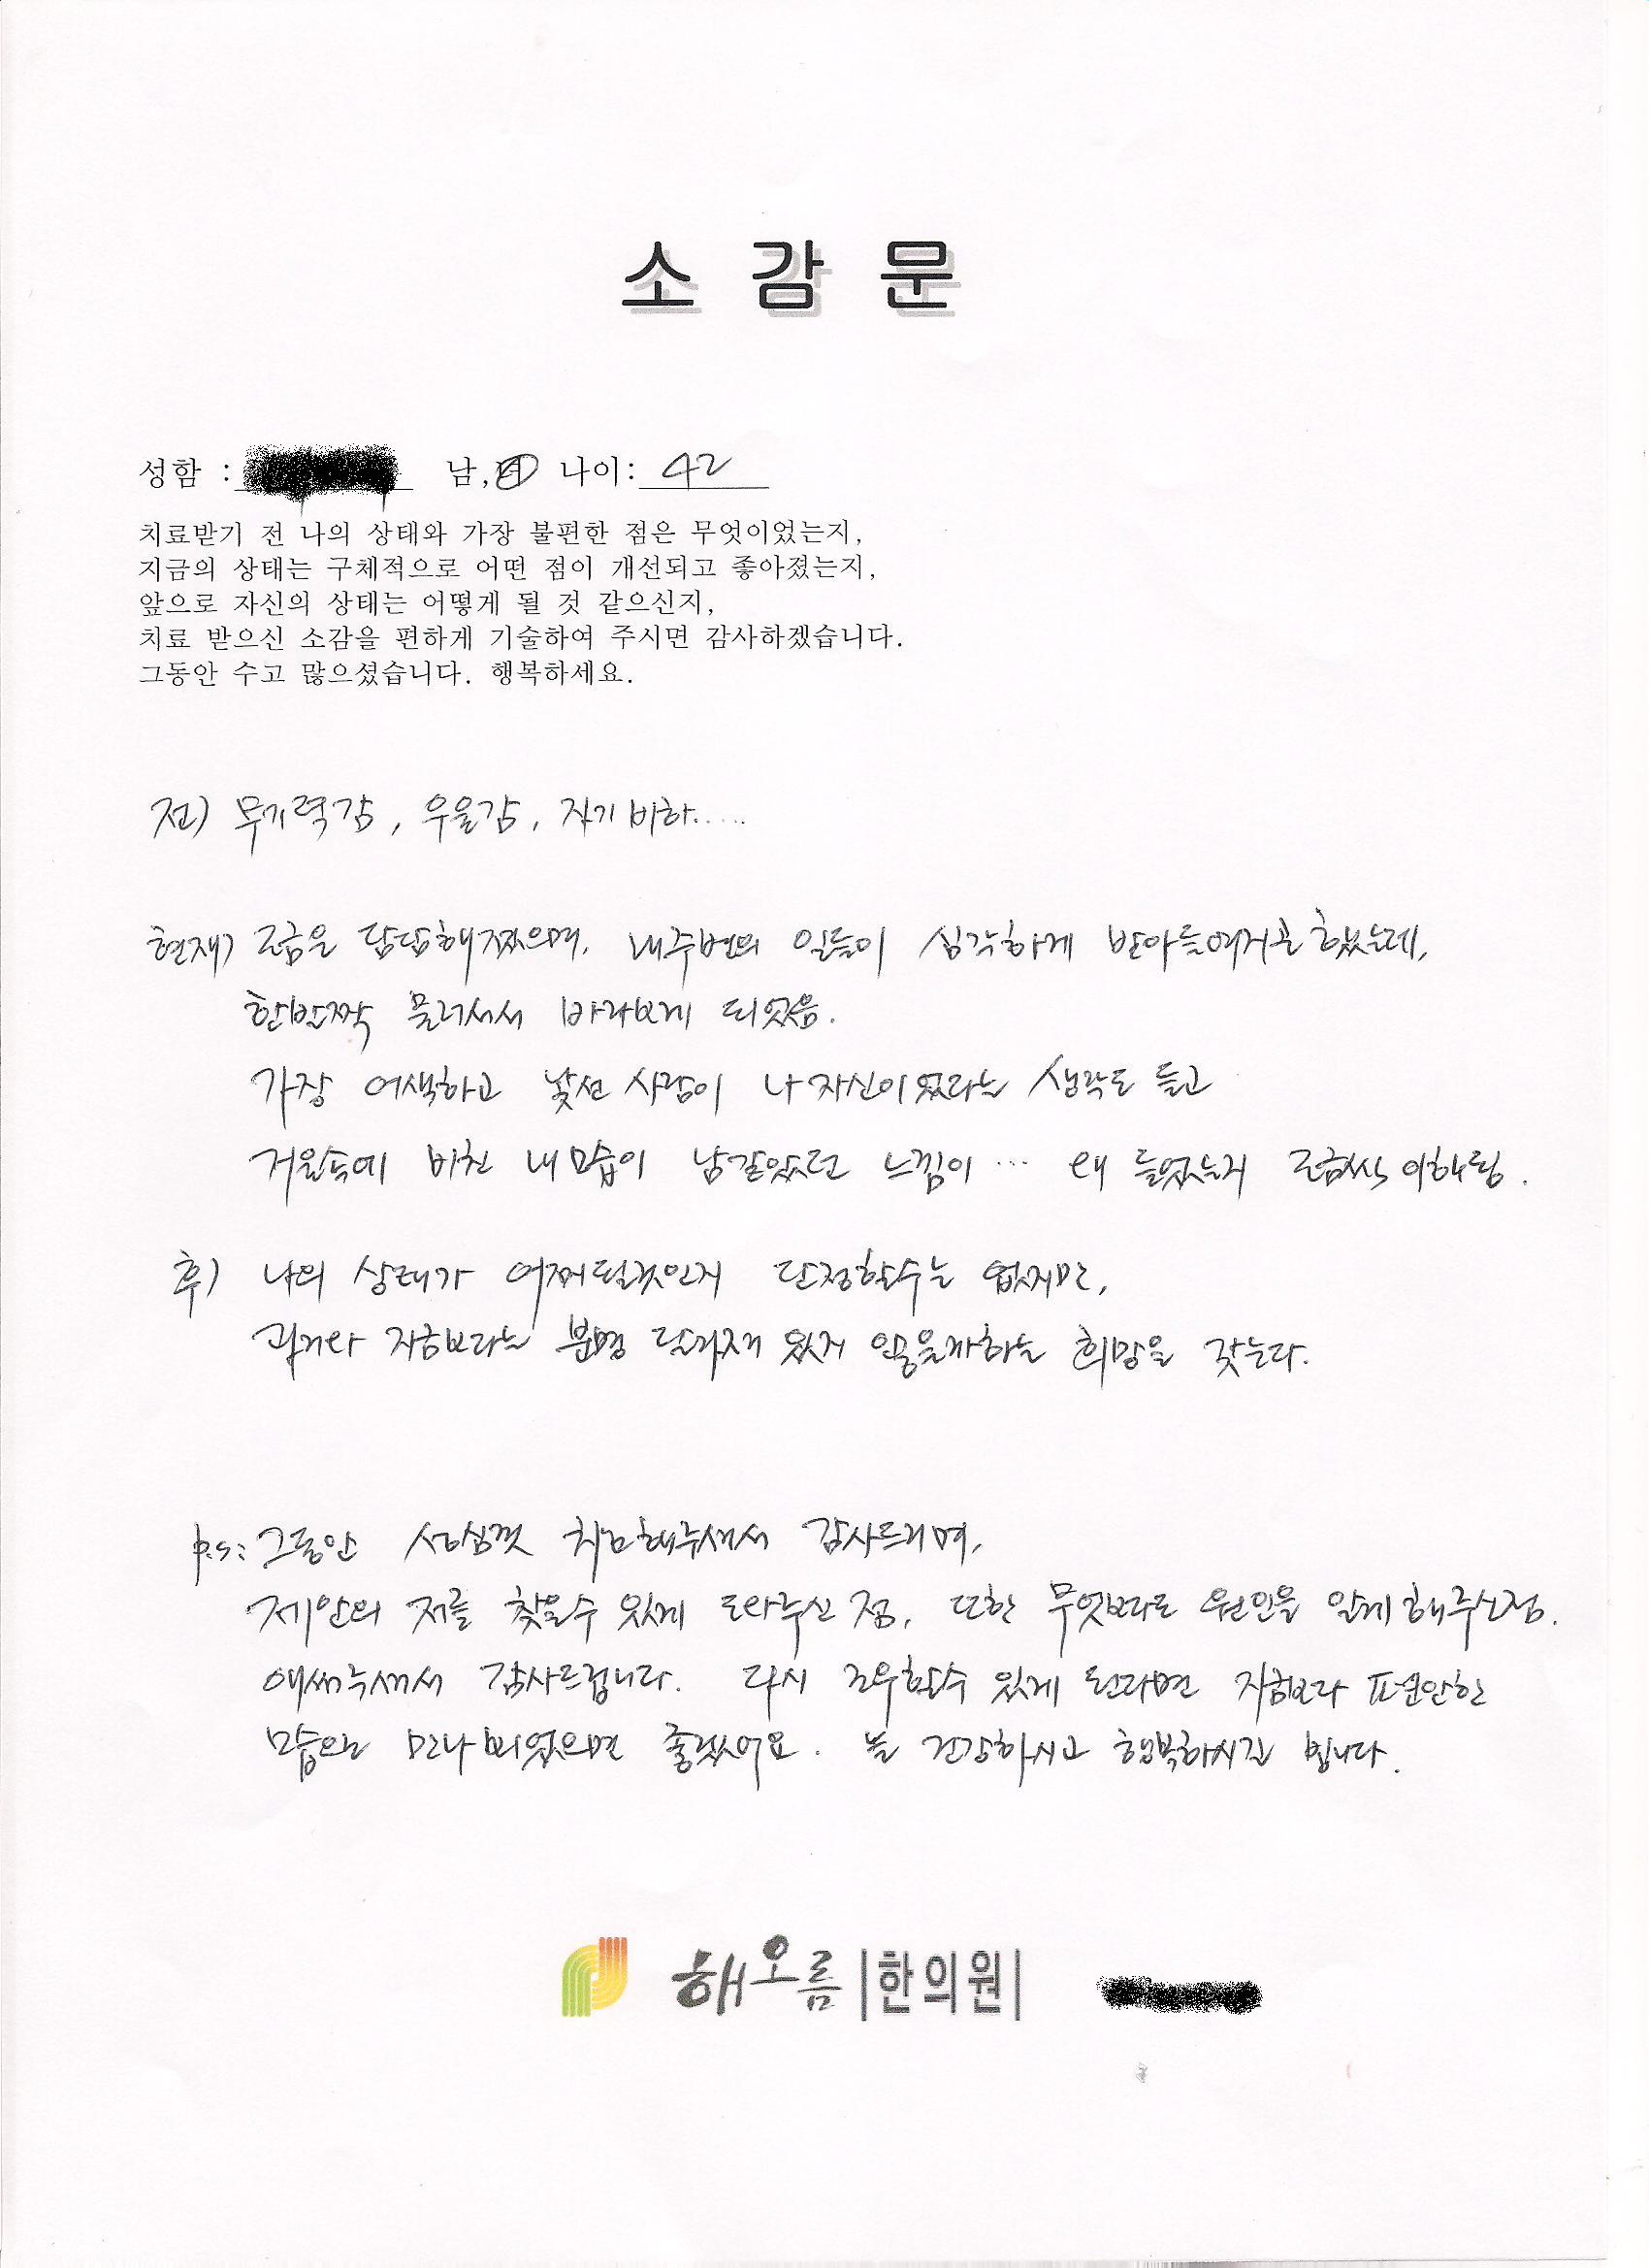 소 감 문
성함 : 남,여 나이: 42
치료받기 전 나의 상태와 가장 불편한 점은 무엇이었는지,
지금의 상태는 구체적으로 어떤 점이 개선되고 좋아졌는지,
앞으로 자신의 상태는 어떻게 될 것 같으신지,
치료 받으신 소감을 편하게 기술하여 주시면 감사하겠습니다.
그동안 수고 많으셨습니다. 행복하세요.
전) 무기력감, 우울감, 자기비하.....
현재) 조금은 담담해졌으며, 내주변의 일들이 심각하게 받아들여지곤 했는데,
한발짝 물러서서 바라보게 되었음.
가장 어색하고 낯선 사람이 나 자신이었다는 생각도 들고
거울속에 비친 내 모습이 남같았던 느낌이 ... 왜 들었는지 조금씩 이해됨.
후) 나의 상태가 어찌될것인지 단정할수는 없지만,
과거와 지금보다는 분명 달라져 있지 않을까하는 희망을 갖는다.
p.s: 그동안 성심껏 치료해주셔서 감사드리며,
제안의 저를 찾을수 있게 도와주신 점, 또한 무엇보다도 원인을 알게 해주신점.
애써주셔서 감사드립니다. 다시 조우할수 있게 된다면 지금보다 편안한
모습으로 만나 뵈었으면 좋겠어요. 늘 건강하시고 행복하시길 빕니다.
해오름 |한의원|